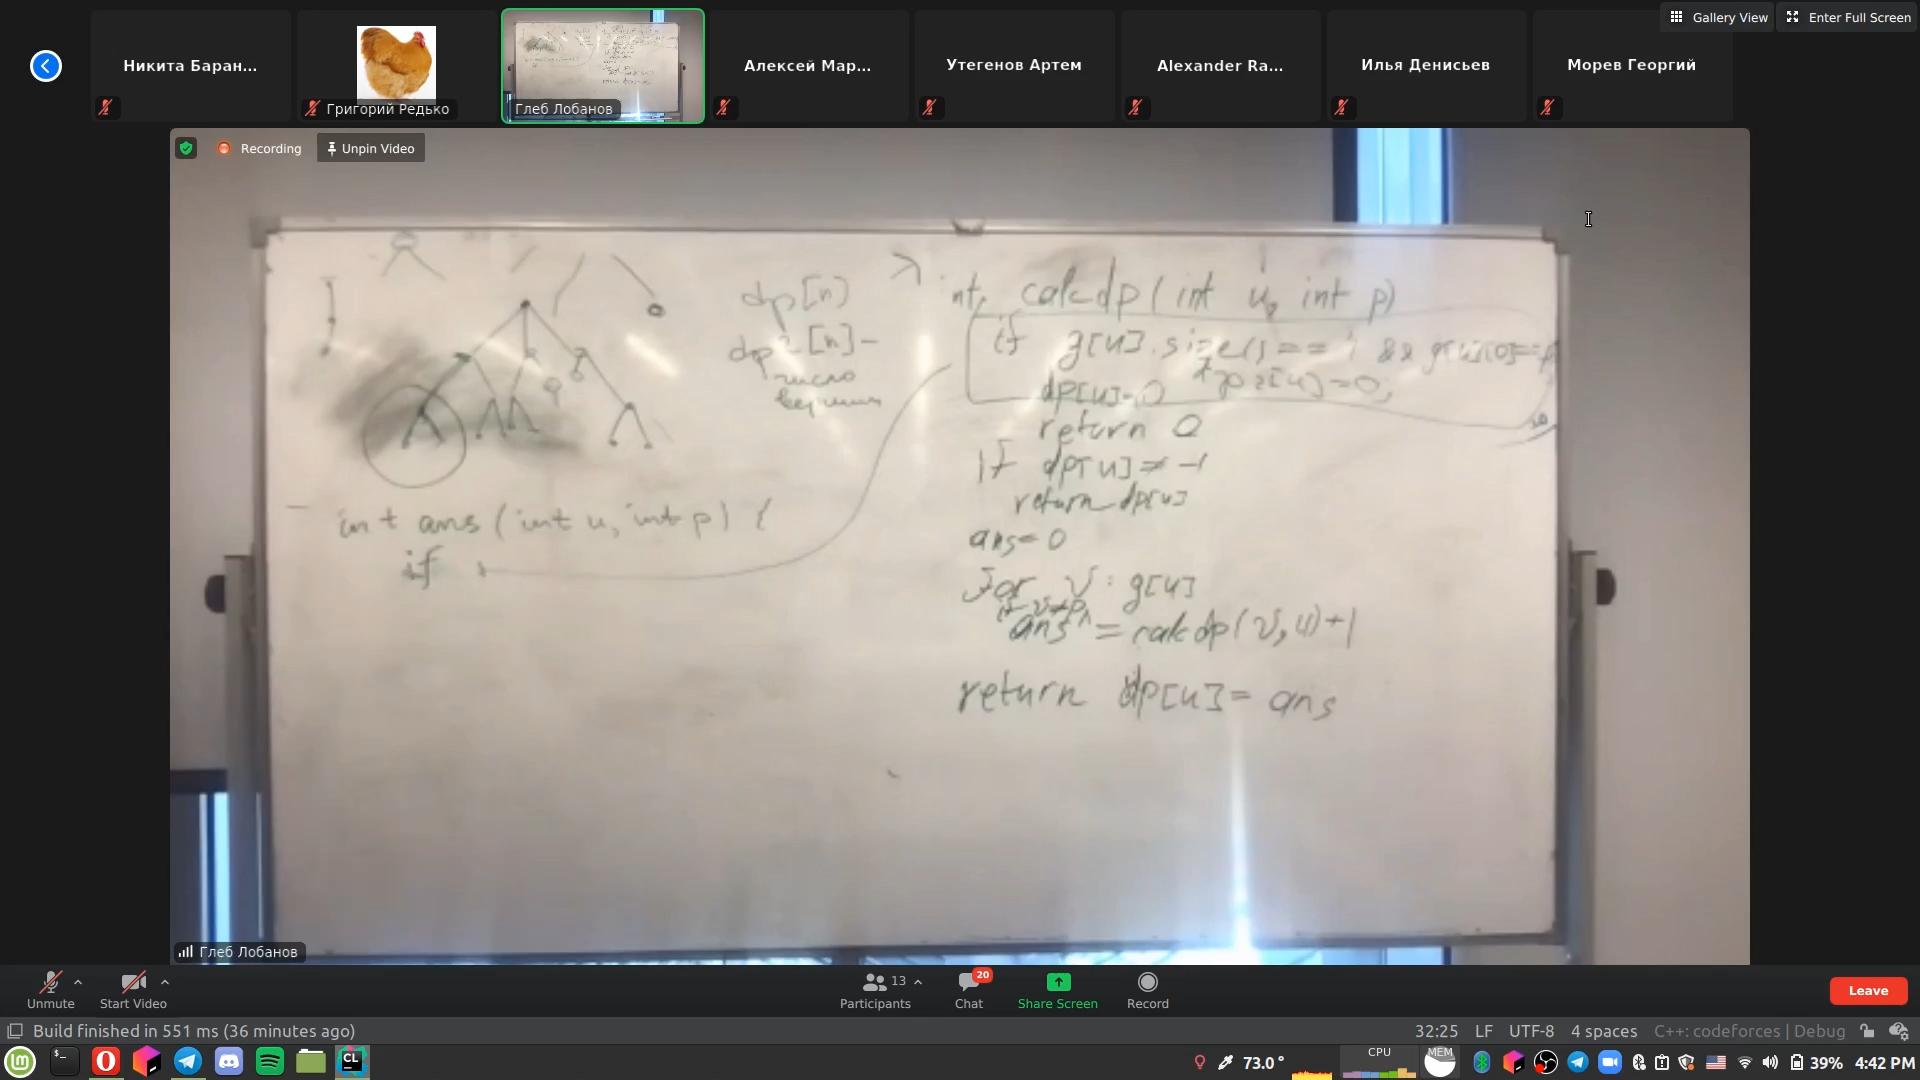 Gallery View
Enter Full Screen
Никита Баран...
Григорий Редько
Глеб Лобанов
Алексей Мар...
Утегенов Артем
Alexander Ra...
Илья Денисьев
Морев Георгий
Recording
Unpin Video
dp[n]
dp2[n]-
число
вершин
int ans (int u, int p) {
if
int calcdp (int u, int p)
if g[u].size() == 1 && g[u][0]==p
dp[u]=0 dp2[u]=0;
return 0
if dp[u] ≠ -1
return dp[u]
ans=0
for v: g[u]
if v≠p
ans ^= calcdp(v,u)+1
return dp[u]= ans
Глеб Лобанов
Unmute
Start Video
13
Participants
20
Chat
Share Screen
Record
Leave
Build finished in 551 ms (36 minutes ago)
32:25 LF UTF-8 4 spaces C++: codeforces | Debug
CL
73.0°
CPU
MEM
39%
4:42 PM